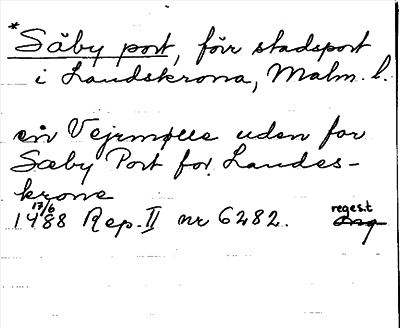 *Säby port, förr stadsport
i Landskrona, Malm. l.
en Vejrmølle uden for
Sæby Port for Landes-
krone
17/6
1488 Rep. II nr 6282.
reges.t